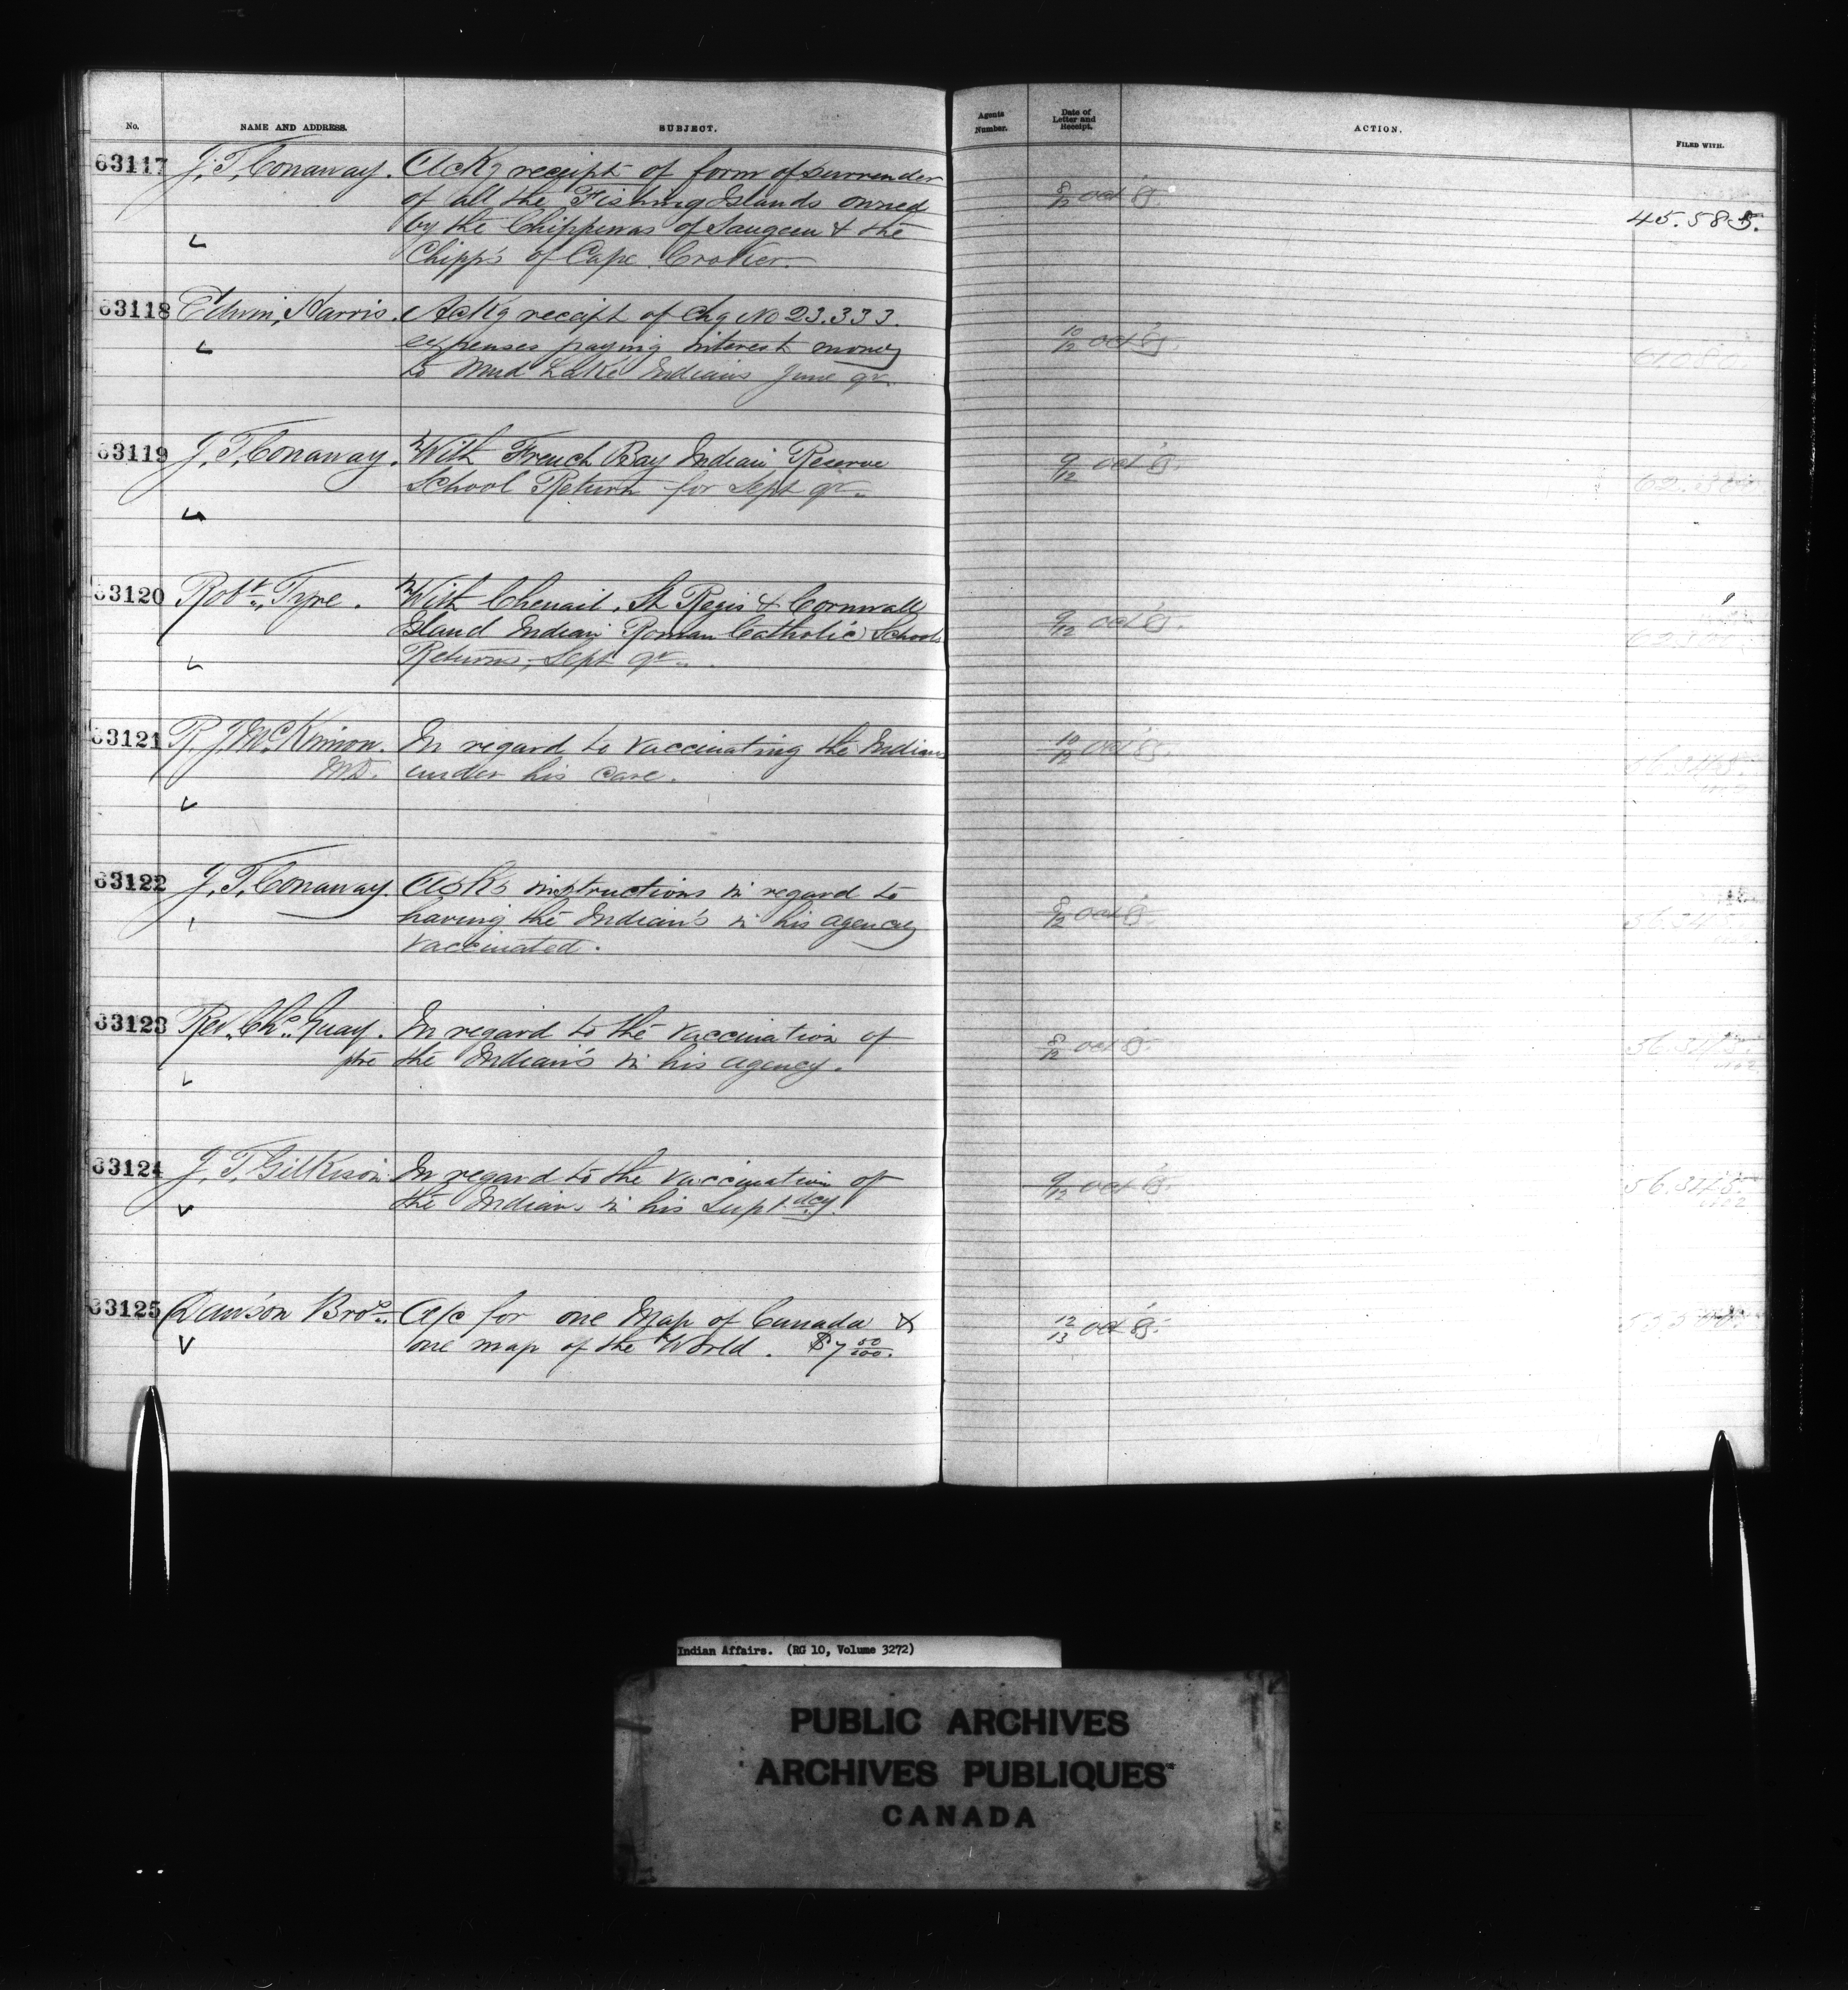 No. NAME AND ADDRESS. SUBJECT. Agents Number. Date of Letter and Receipt. ACTION. FILED WITH.
63117 J. T. Conaway. Ackg receipt of form of surrender
of all the Fishing Islands owned 8/12 Oct 85.
by the Chippewas of Saugeen & the 45.585.
Chipp's of Cape Croker.
63118 Edwin Harris. Ackg receipt of Chq No 23.333.
expenses paying interest money 10/12 Oct 85.
to Mud Lake Indians June qr.
63119 J. T. Conaway. With French Bay Indian Reserve 9/12 Oct 85.
School Return for Sept qr.
63120 Robt. Tyre. With Chenail, St Regis & Cornwall
Island Indian Roman Catholic Schools 9/12 Oct 85.
Returns, Sept qr.
63121 R. J. McKinnon. In regard to vaccinating the Indians 10/12 Oct 85.
MD. under his care.
63122 J. T. Conaway. Asks instructions in regard to
having the Indian's in his agency 8/12 Oct 85.
vaccinated.
63123 Rev. Chs. Guay. In regard to the vaccination of
ptre the Indian's in his agency. 8/12 Oct 85. 56.345.
63124 J. T. Gilkison In regard to the vaccination of 9/12 Oct 85. 56.345.
the Indians in his Supt.dcy.
63125 Dawson Bros. A/c for one Map of Canada & 12/13 Oct 85.
one map of the World. $7 50/100.
Indian Affairs. (RG 10, Volume 3272)
PUBLIC ARCHIVES
ARCHIVES PUBLIQUES
CANADA